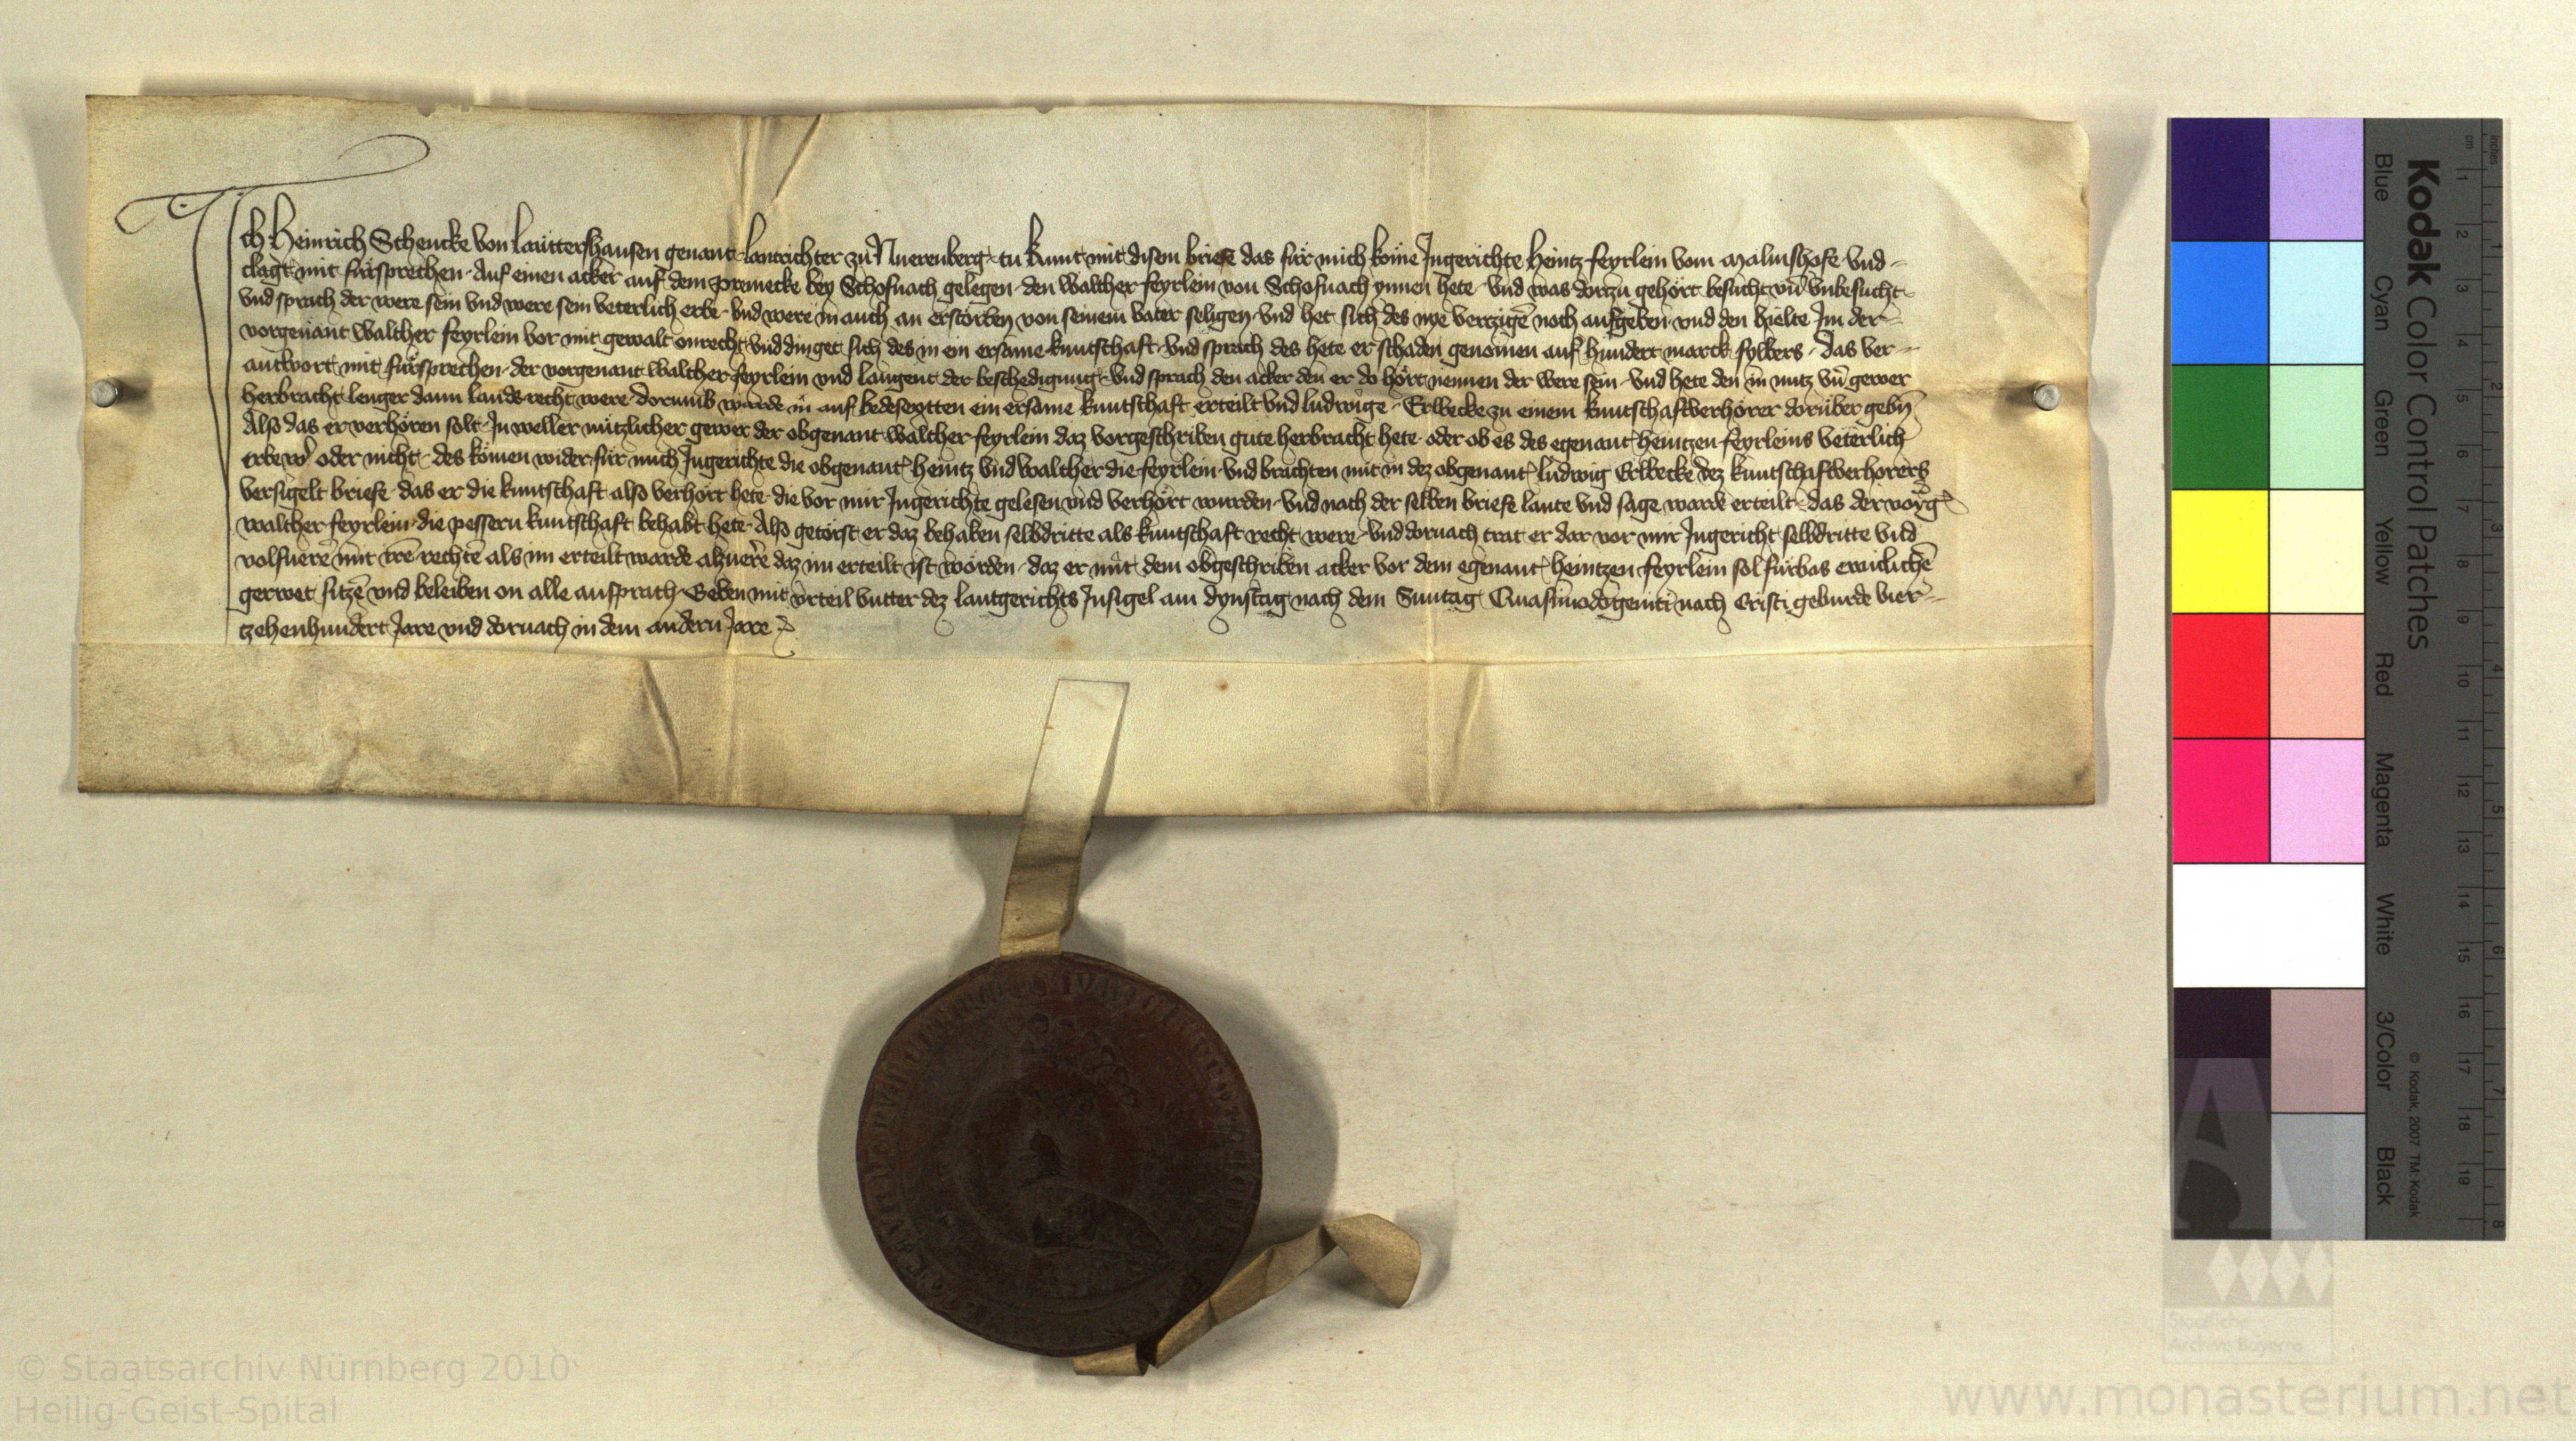 Ich Heinrich Schencke von Lauttershausen genant Lantrichter zu Nuerenberg tu kunt mit disem briefe das für mich kome Ingerichte Heintz feyrlein vom Malmshofe vnd
clagt mit fürsprechen auf einen acker auf dem premecke bey Schofnach gelegen den Walther feyrlein von Schofnach ynnen hete vnd was dorzu gehort besucht vn̄ vnbesucht
vnd sprach der were sein vnd were sein veterlich erbe vnd were in auch an erstorben von seinem vater seligen vnd het sich des nye verczigē noch aufgeben vnd den hielte Im der
vorgenant Walther feyrlein vor mit gewalt on recht vnd dinget sich des in ein ersame kuntschaft vnd sprach des hete er schaden genomen auf hundert marck sylbers Das ver
antwort mit fürsprechen der vorgenant Walther feyrlein vnd laugent der beschedigung vnd sprach den acker den er do hört nennen der were sein vnd hete den in nutz vn̄ gewer
herbracht lenger dann lands recht were dorumb wurde in auf bedeseytten ein ersame kuntschaft erteilt vnd Ludwige Erlbecke zu einem kuntschaftverhörer dorüber gebn̄
Also das er verhören solt In weller nützlicher gewer der obgenant Walther feyrlein daz vorgeschriben gute herbracht hete oder ob es des egenant heintzen feyrleins veterlich
erbe wer oder nicht des komen wider für mich Ingerichte die obgenant heintz vnd Walther die feyrlein vnd brachten mir in dez obgenant Ludwig Erlbecke dez kuntschaftverhorers
versigelt briefe das er die kuntschaft also verhört hete die vor mir Ingerichte gelesen vnd verhört wurden vnd nach der selben briefe laute vnd sage warde erteilt das der vorg
Walther feyrlein die pessern kuntschaft behabt hete Also getörst er daz behaben selbdritte als kuntschaft recht were vnd dornach trat er dar vor mir Ingericht selbdritte vnd
volfuerē mit irē rechtē als im erteilt warde daz im erteilt ist worden daz er mit dem obgeschriben acker vor dem egenant heintzen feyrlein sol fürbas erwiclichē
gerwet sitzē vnd beleiben on alle ansprach Geben mit vrteil vntter dez lantgerichts Insigel am dynstag nach dem Suntag Quasimodogeniti nach Cristi geburde vier
tzehenhundert Jare vnd dornach in dem andern Jare
Kodak Color Control Patches
Blue Cyan Green Yellow Red Magenta White 3/Color Black
© Kodak, 2007 TM: Kodak
cm 1 2 3 4 5 6 7 8 9 10 11 12 13 14 15 16 17 18 19
inches 1 2 3 4 5 6 7 8
Staatliche
Archive Bayerns
© Staatsarchiv Nürnberg 2010
Heilig-Geist-Spital
www.monasterium.net